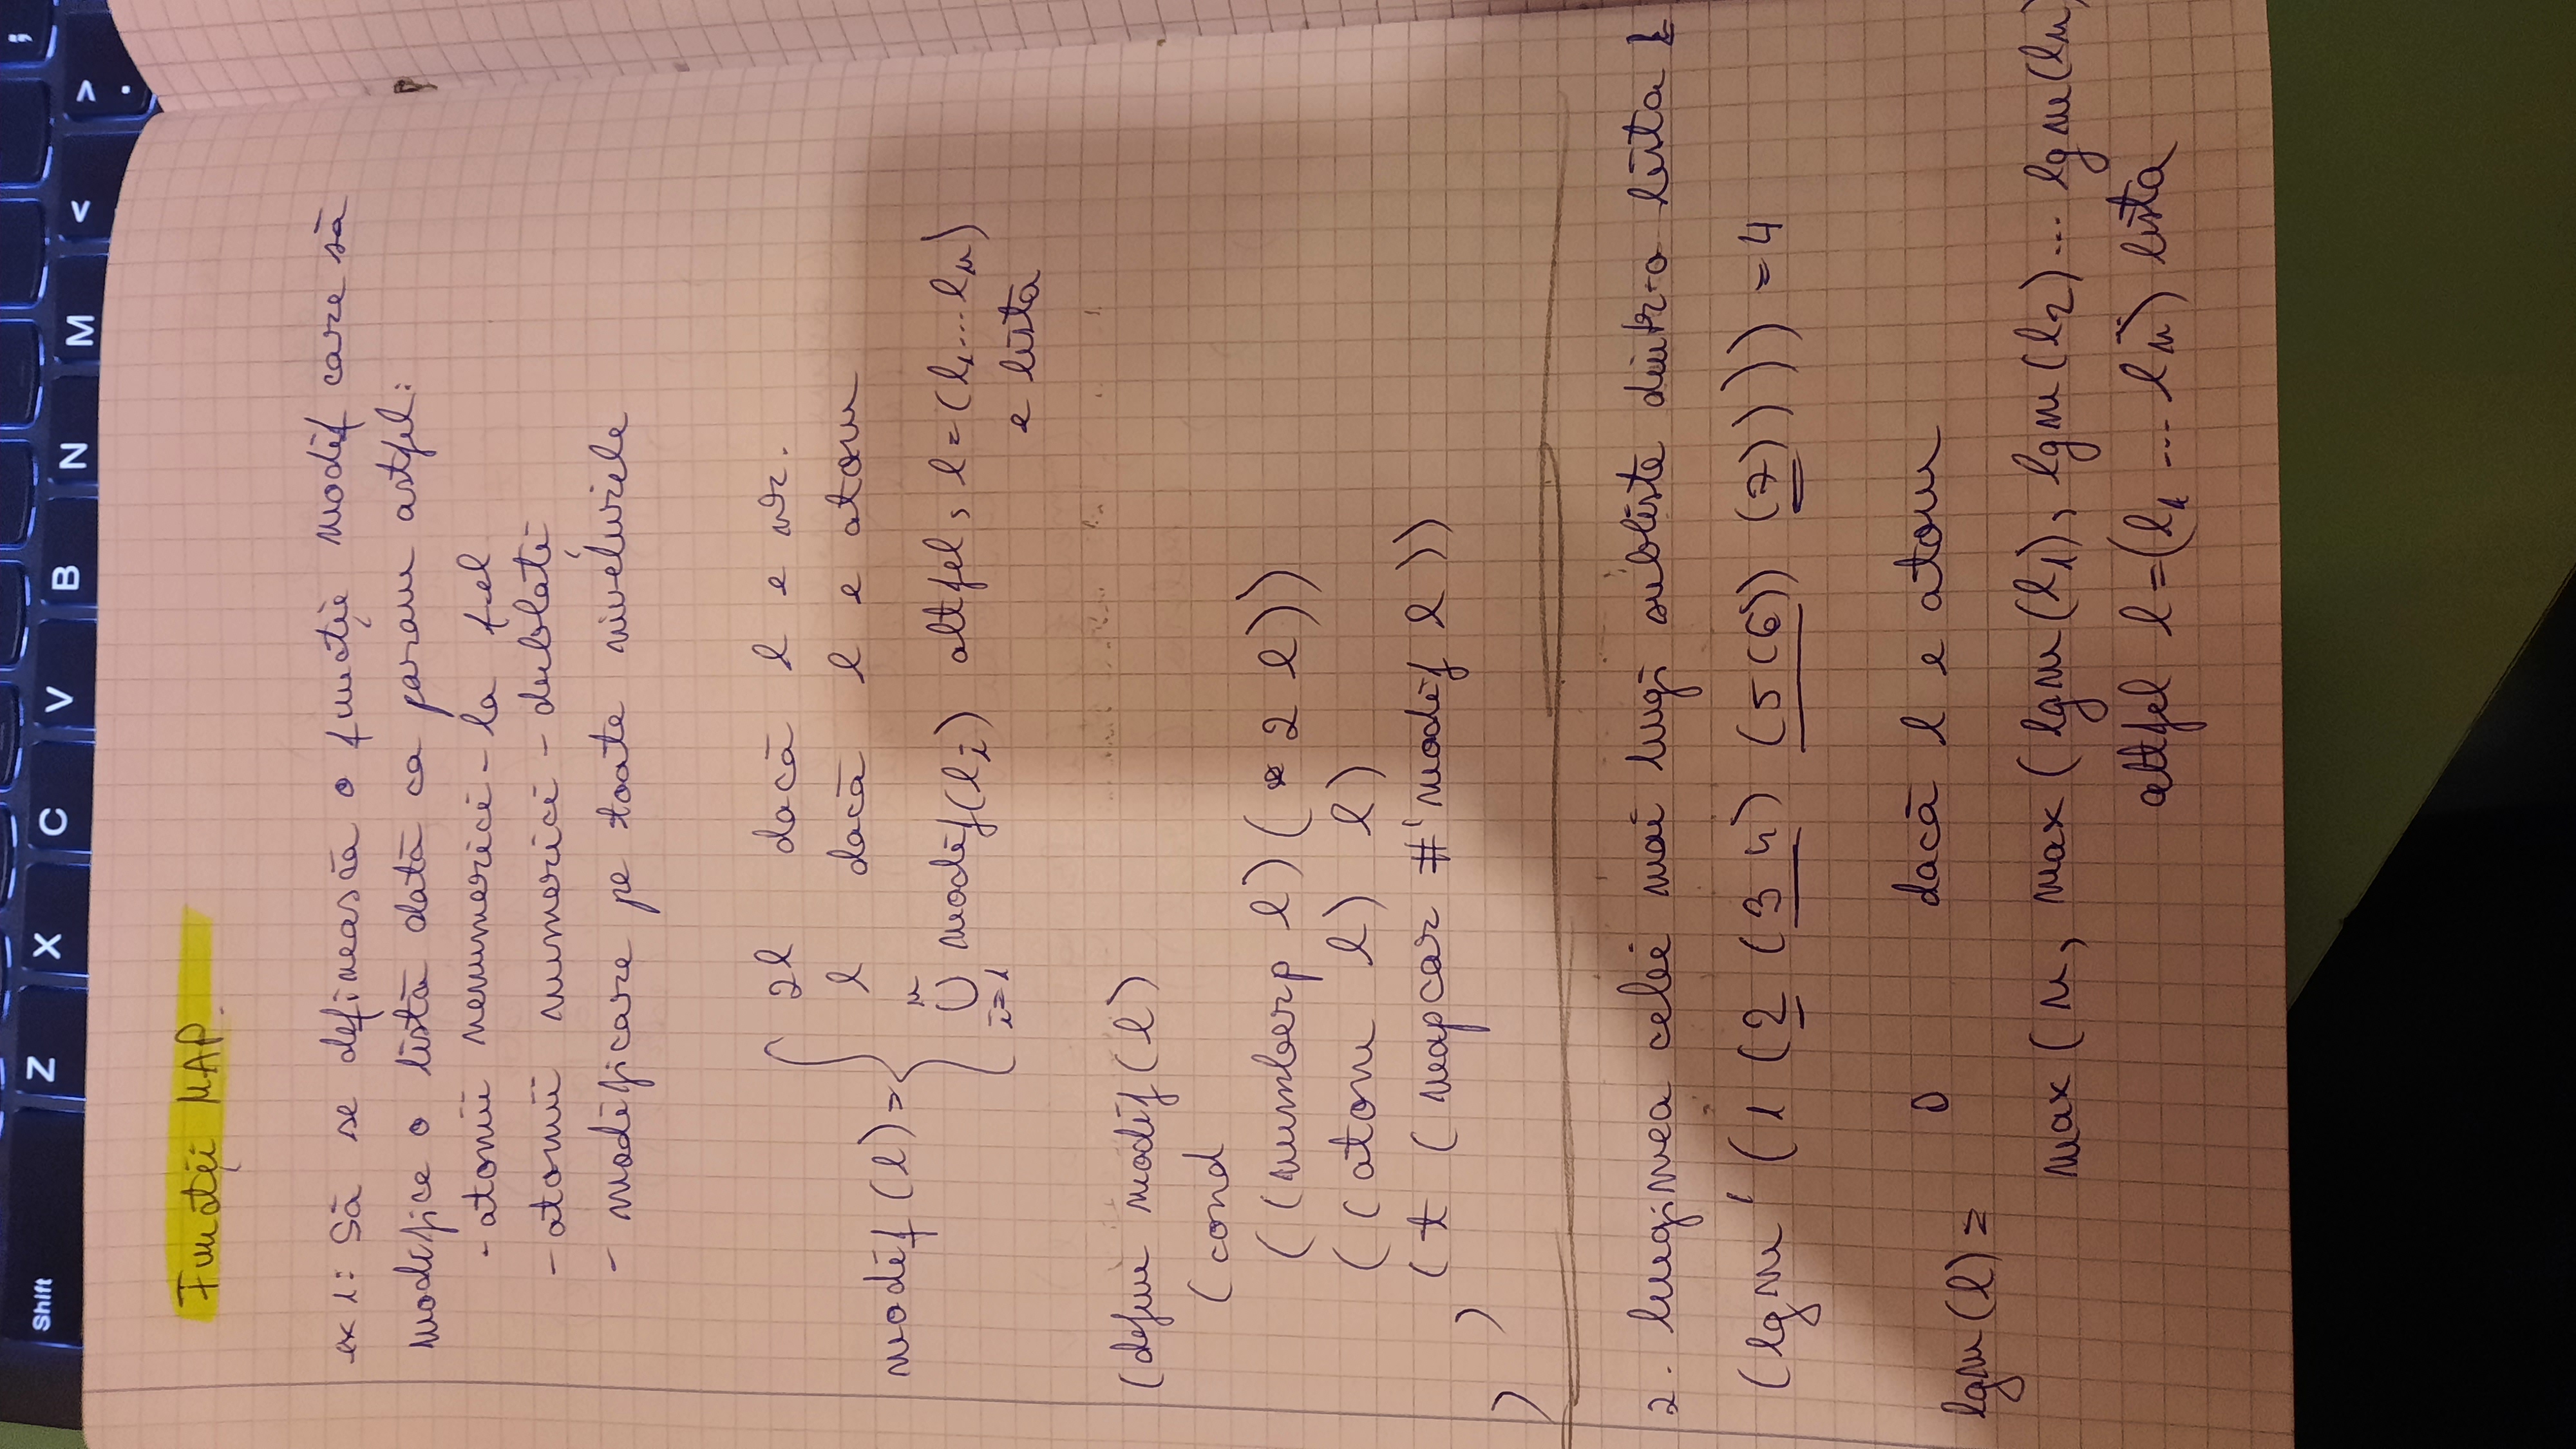 Shift Z X C V B N M < > . ;
Funcții MAP.
ex 1: Să se definească o funcție modif care să
modifice o listă dată ca param astfel:
- atomii nenumerici - la fel
- atomii numerici - dublați
- modificare pe toate nivelurile
2l dacă l e nr.
l dacă l e atom
modif (l) =
n
⋃ modif(li) altfel, l = (l1 ... ln)
i=1
e lista
(defun modif (l)
(cond
((numberp l) (* 2 l))
((atom l) l)
(t (mapcar #'modif l))
)
)
2. lungimea celei mai lungi subliste dintr-o lista L
(lgm '(1 (2 (3 4) (5 (6)) (7)))) = 4
0 dacă l e atom
lgm (l) =
max (n, max (lgm (l1), lgm (l2) ... lgm (ln)
altfel l = (l1 ... ln) lista